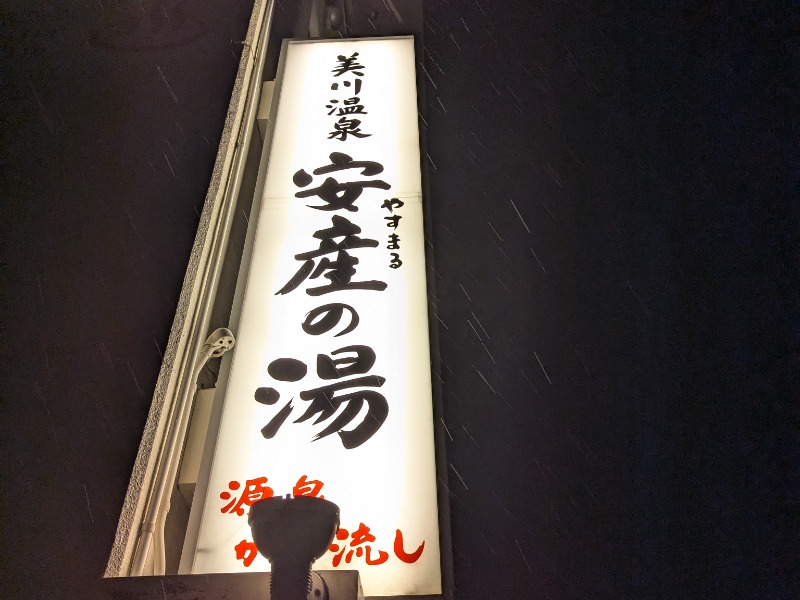 美川温泉
安産の湯
やすまる
源泉
か 流し